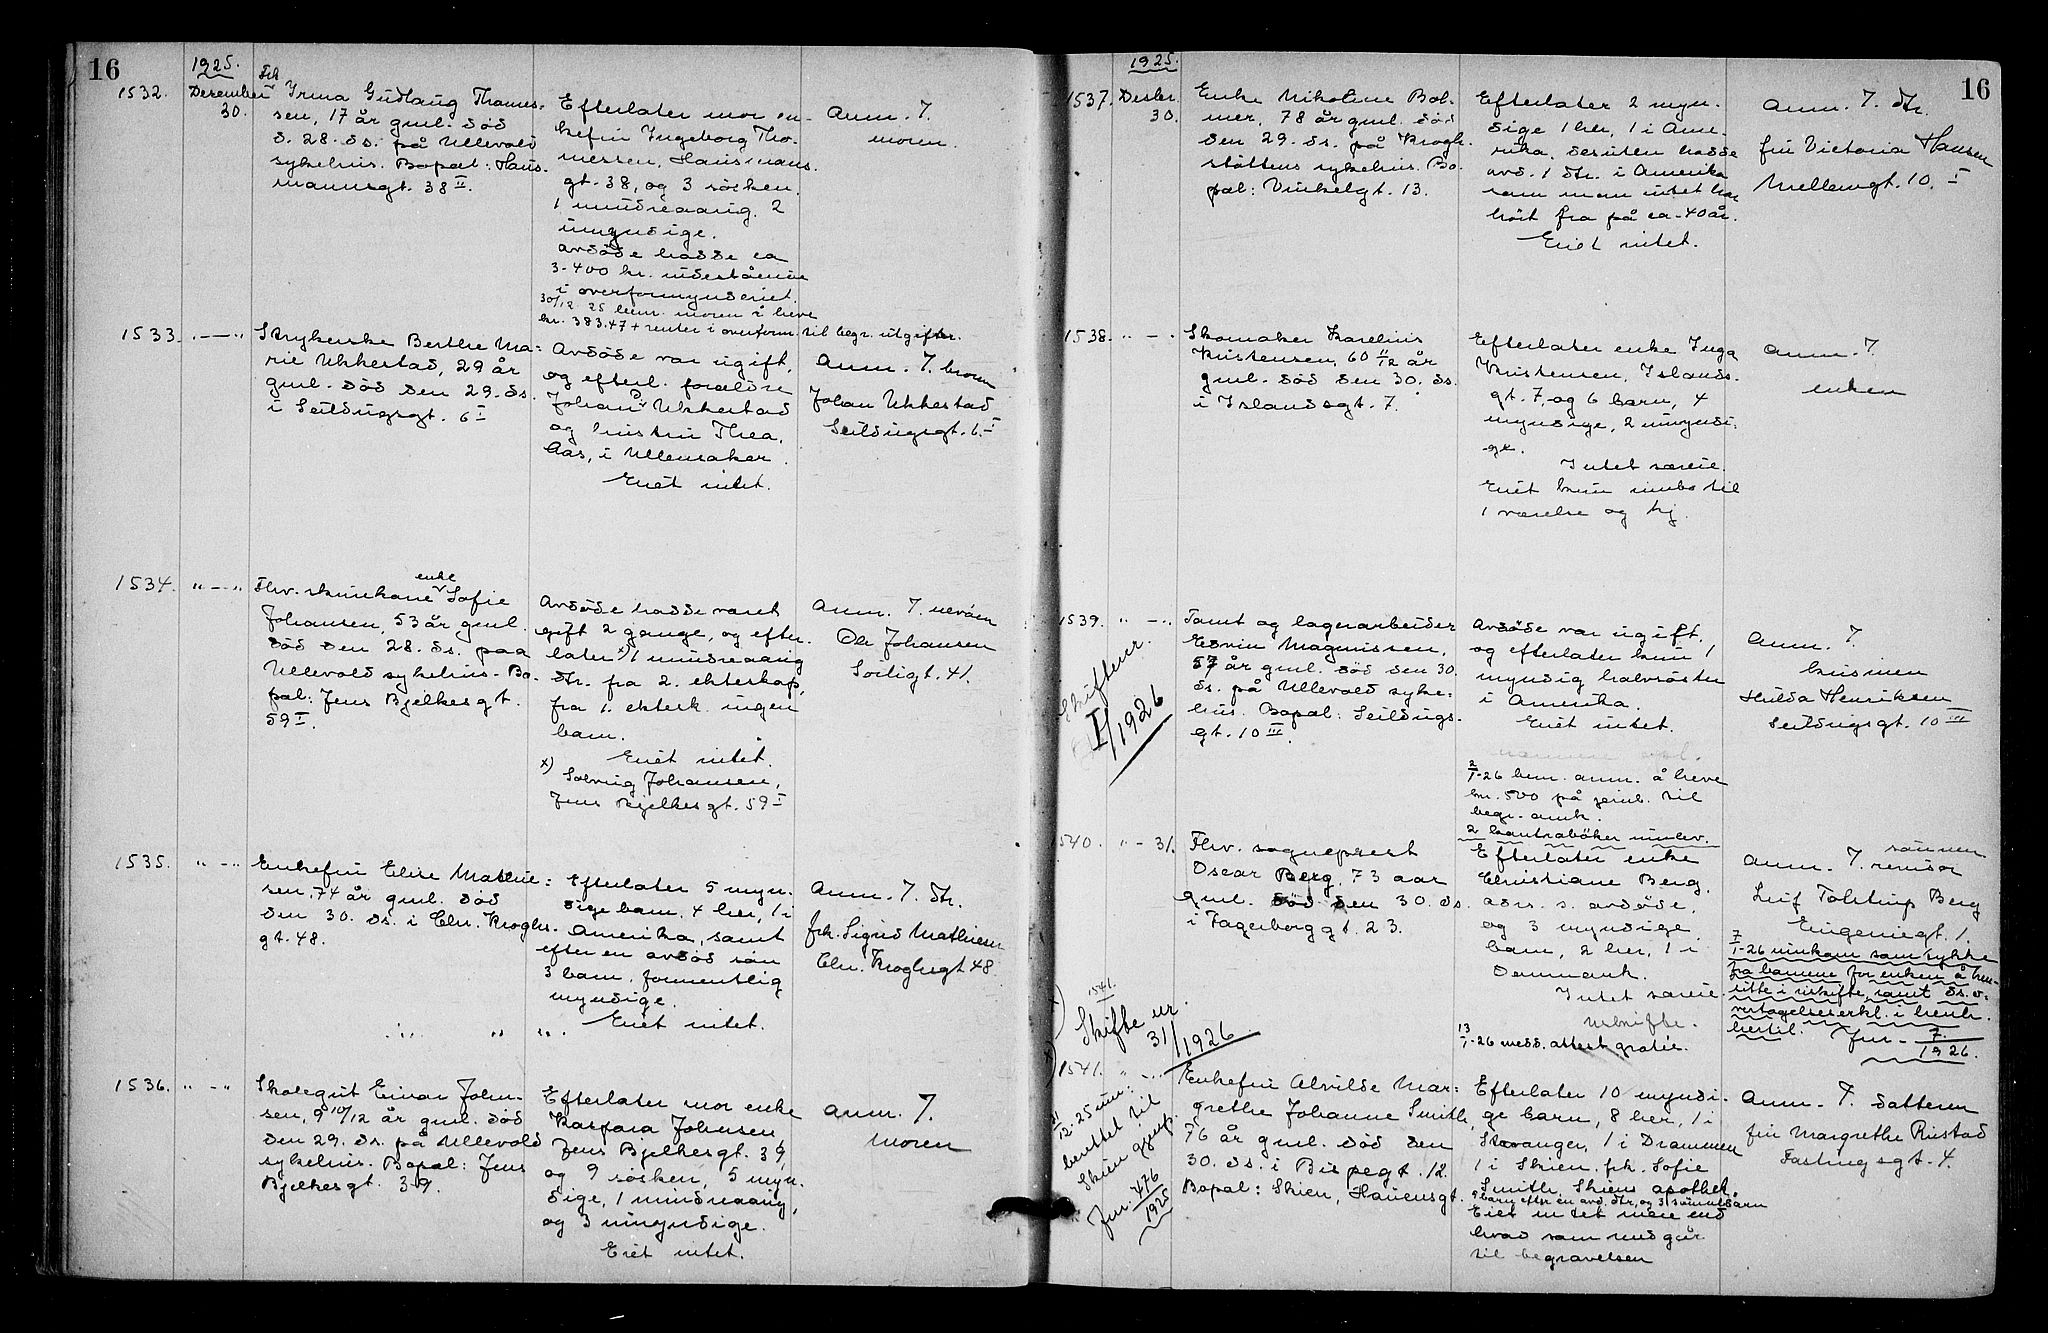 16
1925.
1532.
Desember
30.
Frk
Irma Gudlaug Thomes-
sen, 17 år gml. død
d. 28. ds. på Ullevold
sykehus. Bopæl: Haus-
mannsgt. 38 II.
Efterlater mor en-
kefru Ingeborg Tho-
messen, Hausmans-
gt. 38, og 3 søsken.
1 mindreaarig. 2
umyndige.
Avdøde hadde ca
3-400 kr. indestående
i overformynderiet.
30/12 25 bem. moren å heve
kr. 383.47 + renter i overform. til begr. utgifter.
Anm. 7.
moren.
1533. " — "
Strykerske Berthe Ma-
rie Ukkestad, 29 år
gml. død den 29. ds.
i Seildugsgt. 6 I
Avdøde var ugift,
og efterl. forældre
Johan Ukkestad
og hustru Thea,
Aas, i Ullensaker.
Eiet intet.
Anm. 7. broren
Johan Ukkestad
Seildugsgt. 6 I
1534. " — "
enke
Fhv. skurekone Sofie
Johansen, 53 år gml.
død den 28. ds. paa
Ullevold sykehus. Bo-
pæl: Jens Bjelkesgt.
59 I.
Avdøde hadde været
gift 2 gange, og efter-
later x) 1 mindreaarig
dtr. fra 2. ekteskap,
fra 1. ektesk. ingen
barn.
Eiet intet.
x) Solveig Johansen,
Jens Bjelkesgt. 59 I
Anm. 7. nevøen
Ole Johansen
Toiligt. 41.
1535. " — "
Enkefru Elise Mathie-
sen, 74 år gml. død
den 30. ds. i Chr. Kroghs-
gt. 48.
Efterlater 5 myn-
dige barn, 4 her, 1 i
Amerika, samt
efter en avdød søn
3 barn, formentlig
myndige.
Eiet intet.
Anm. 7. dtr.
frk. Sigrid Mathiesen
Chr. Kroghsgt 48.
1536. " — "
Skolegut Einar Johan-
sen, 9 10/12 år gml. død
den 29. ds. på Ullevold
sykehus. Bopæl: Jens
Bjelkesgt. 39.
Efterlater mor enke
Kaspara Johansen,
Jens Bjelkesgt. 39,
og 9 søsken, 5 myn-
dige, 1 mindreaarig,
og 3 umyndige.
Eiet intet.
Anm. 7.
Moren
16
1925.
1537. Desbr.
30.
Enke Nikoline Bol-
mer, 78 år gml. død
den 29. ds. på Krogh-
støttens sykehus. Bo-
pæl: Vinkelgt. 13.
Efterlater 2 myn-
dige 1 her, 1 i Ame-
rika, desuten hadde
avd. 1 dtr. i Amerika
som man intet har
hørt fra på ca. 40 år.
Eiet intet.
Anm. 7. dtr.
fru Victoria Hansen
Mellemgt. 10. I
1538. " — "
Skomaker Karelius
Kristensen, 60 11/12 år
gml. død den 30. ds.
i Islandsgt. 7.
Efterlater enke Inga
Kristensen, Islands-
gt. 7, og 6 barn, 4
myndige, 2 umyndi-
ge.
Intet særeie.
Eiet kun innbo til
1 værelse og kj.
Anm. 7.
enken
1539. " — "
Tomt og lagerarbeider
Edvin Magnussen,
57 år gml. død den 30.
ds. på Ullevold syke-
hus. Bopæl: Seildugs-
gt. 10 III.
Avdøde var ugift,
og efterlater kun 1
myndig halvsøster
i Amerika.
Eiet intet.
2/1-26 bem. anm. å heve
kr. 500 på til
begr. omk.
2 kontrabøker innlev.
Anm. 7
kusinen
Hilda Henriksen
Seildugsgt. 10 III
I/1926
1540. " — 31.
Fhv. sogneprest
Oscar Berg, 73 aar
gml. død den 30. ds.
i Fagerborggt. 23.
Efterlater enke
Christiane Berg,
adrs. s. avdøde,
og 3 myndige
barn, 2 her, 1 i
Danmark.
Intet særeie.
Uskifte.
13/1-26 medd. attest gratis.
sønnen
Anm. 7. revisor
Leif Tolstrup Berg
Eugeniegt. 1.
7/1-26 innkom samtykke
fra barnene for enken å hen-
sitte i uskifte, samt ds. o-
vertagelseserkl. i henh.
hertil. Jnr. 7/1926.
1541.
Skifte nr
31/1926
1541. " — "
Enkefru Alvilde Mar-
grethe Johanne Smith,
76 år gml. død den
30. ds. i Bispegt. 12.
Bopæl: Skien, Hauensgt.
Efterlater 10 myndi-
ge barn, 8 her, 1 i
Stavanger, 1 i Drammen
1 i Skien. frk. Sofie
Smith, Skiens apothek.
barn efter en avd. dtr, og 3 sønnebarn
Eiet intet mere end
hvad som medgår
til begravelsen
Anm. 7. datteren
fru Margrethe Rustad
Fastingsgt. 4.
31/12-25 inn-
berettet til
Skien
Jnr. 476/1925